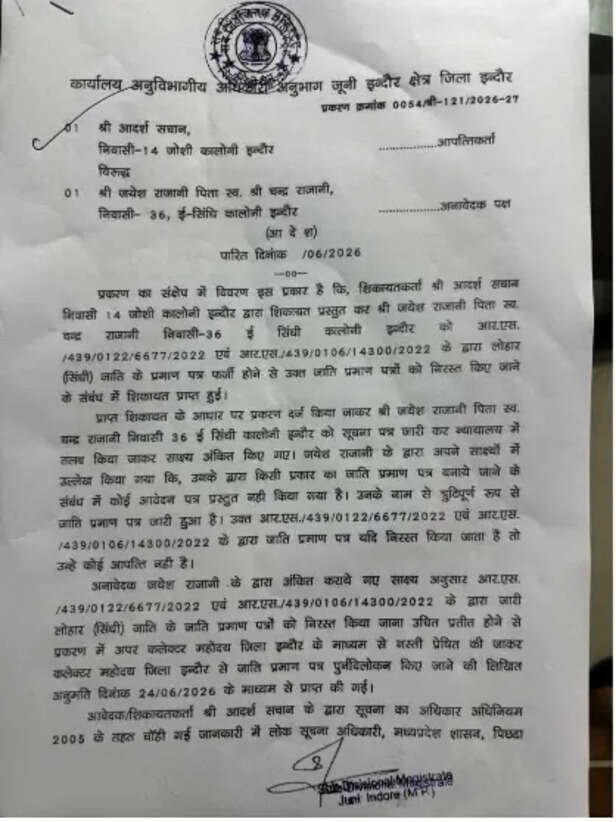 कार्यालय अनुविभागीय अधिकारी अनुभाग जूनी इन्दौर क्षेत्र जिला इन्दौर
प्रकरण क्रमांक 0054/बी-121/2026-27
01 श्री आदर्श सचान,
निवासी-14 जोशी कालोनी इन्दौर ..................आपत्तिकर्ता
विरूद्ध
01 श्री जयेश राजानी पिता स्व. श्री चन्द्र राजानी,
निवासी- 36, ई-सिंधि कालोनी इन्दौर ..................अनावेदक पक्ष
(आ दे श)
पारित दिनांक /06/2026
--00--
प्रकरण का संक्षेप में विवरण इस प्रकार है कि, शिकायतकर्ता श्री आदर्श सचान
निवासी 14 जोशी कालोनी इन्दौर द्वारा शिकायत प्रस्तुत कर श्री जयेश राजानी पिता स्व.
चन्द्र राजानी निवासी-36 ई सिंधी कालोनी इन्दौर को आर.एस.
/439/0122/6677/2022 एवं आर.एस./439/0106/14300/2022 के द्वारा लोहार
(सिंधी) जाति के प्रमाण पत्र फर्जी होने से उक्त जाति प्रमाण पत्रों को निरस्त किए जाने
के संबंध में शिकायत प्राप्त हुई।
प्राप्त शिकायत के आधार पर प्रकरण दर्ज किया जाकर श्री जयेश राजानी पिता स्व.
चन्द्र राजानी निवासी 36 ई सिंधी कालोनी इन्दौर को सूचना पत्र जारी कर न्यायालय में
तलब किया जाकर साक्ष्य अंकित किए गए। जयेश राजानी के द्वारा अपने साक्ष्यों में
उल्लेख किया गया कि, उनके द्वारा किसी प्रकार का जाति प्रमाण पत्र बनाये जाने के
संबंध में कोई आवेदन पत्र प्रस्तुत नही किया गया है। उनके नाम से त्रुटिपूर्ण रूप से
जाति प्रमाण पत्र जारी हुआ है। उक्त आर.एस./439/0122/6677/2022 एवं आर.एस.
/439/0106/14300/2022 के द्वारा जाति प्रमाण पत्र यदि निरस्त किया जाता है तो
उन्हे कोई आपत्ति नही है।
अनावेदक जयेश राजानी के द्वारा अंकित कराये गए साक्ष्य अनुसार आर.एस.
/439/0122/6677/2022 एवं आर.एस./439/0106/14300/2022 के द्वारा जारी
लोहार (सिंधी) जाति के जाति प्रमाण पत्रों को निरस्त किया जाना उचित प्रतीत होने से
प्रकरण में अपर कलेक्टर महोदय जिला इन्दौर के माध्यम से नस्ती प्रेषित की जाकर
कलेक्टर महोदय जिला इन्दौर से जाति प्रमाण पत्र पुर्नविलोकन किए जाने की लिखित
अनुमति दिनांक 24/06/2026 के माध्यम से प्राप्त की गई।
आवेदक/शिकायतकर्ता श्री आदर्श सचान के द्वारा सूचना का अधिकार अधिनियम
2005 के तहत चॉही गई जानकारी में लोक सूचना अधिकारी, मध्यप्रदेश शासन, पिछडा
Sub Divisional Magistrate
Juni Indore (M.P.)